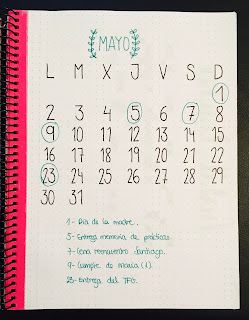 MAYO
L M X J V S D
1
2 3 4 5 6 7 8
9 10 11 12 13 14 15
16 17 18 19 20 21 22
23 24 25 26 27 28 29
30 31
1- Día de la madre.
5- Entrega memoria de prácticas.
7- Cena reencuentro Santiago.
9- Cumple de María (1)
23- Entrega del TFG.